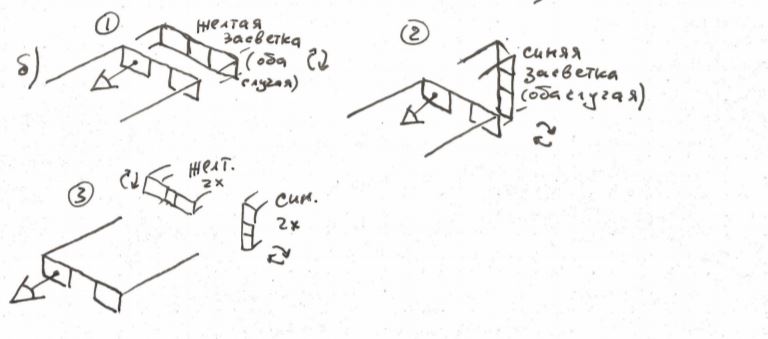 б)
①
желтая
засветка
(оба
случая)
②
синяя
засветка
(оба случая)
③
желт.
2х
син.
2х